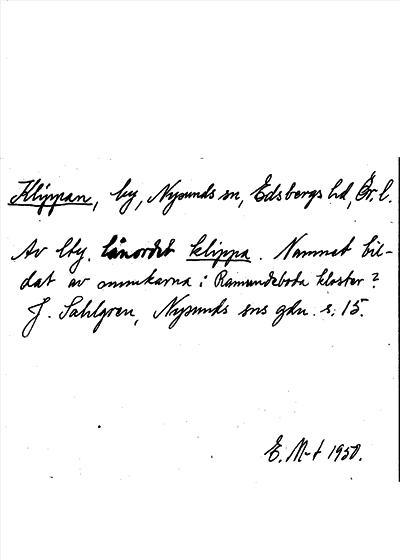 Klippan, by, Nysunds sn, Edsbergs hd, Ör. l.
Av lty. lånordet klippa. Namnet bil-
dat av munkarna i Ramundeboda kloster?
J. Sahlgren, Nysunds sns gdn. s. 15.
E. M-t 1950.